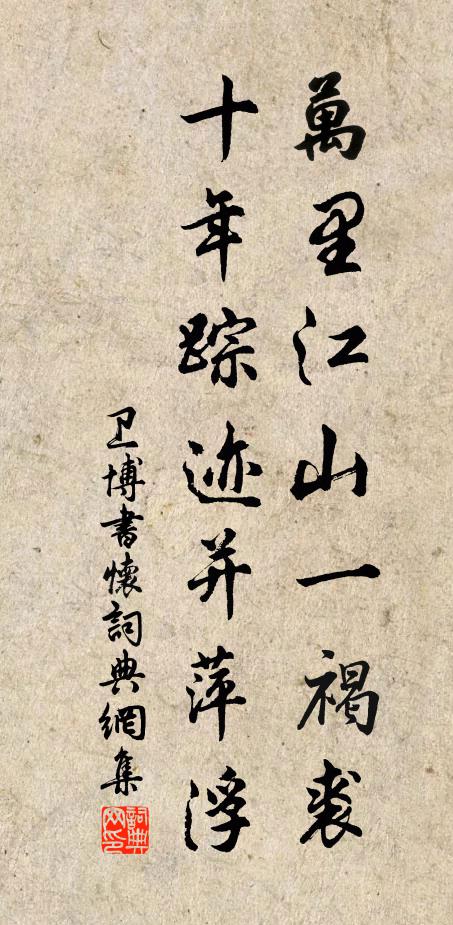 萬里江山一褐裘
十年踪迹并萍浮
卫博書懷詞典網集
詞典网印